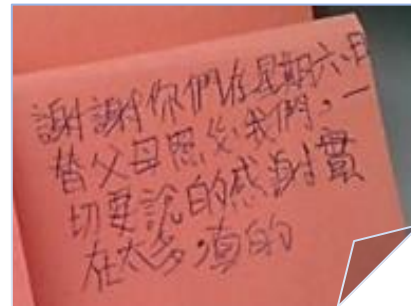 謝謝你們在星期六、日
替父母照顧我們。一
切要說的感謝實
在太多,真的